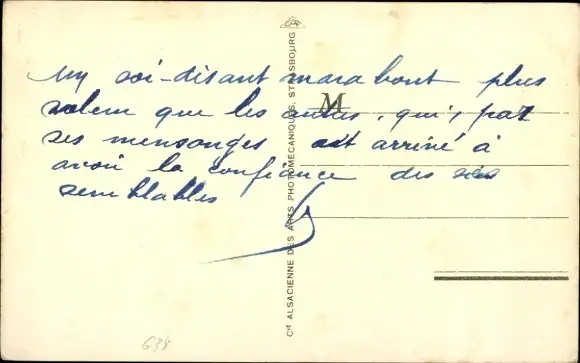 un soi-disant marabout plus
voleur que les autres, qui, par
ses mensonges est arrivé à
avoir la confiance des ses
semblables
M
Cie ALSACIENNE DES ARTS PHOTOMECANIQUES, STRASBOURG
638